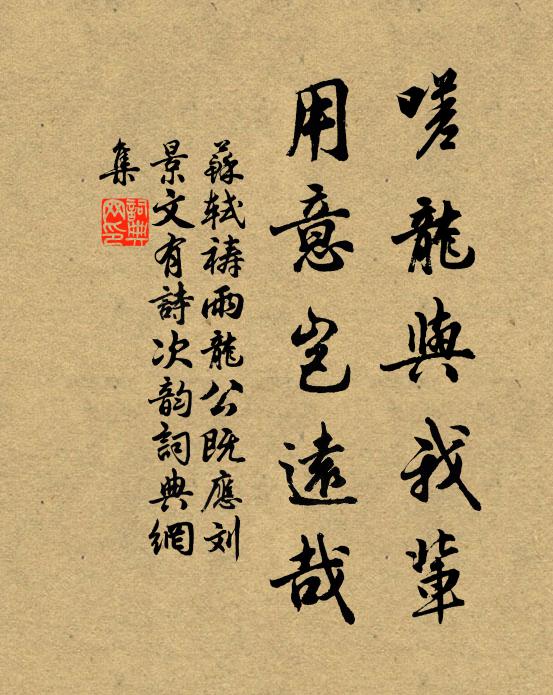 嗟龍與我輩
用意豈遠哉
蘇軾禱雨龍公既應刘
景文有詩次韵詞典網
集
詞典網印